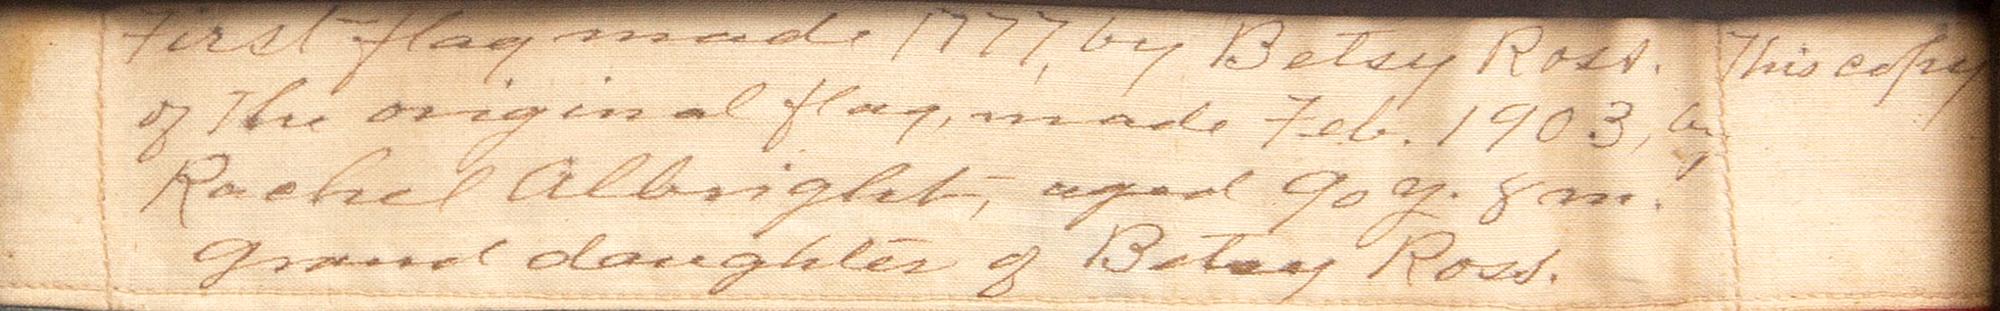 First flag made 1777, by Betsy Ross. This copy
of the original flag, made Feb. 1903, by
Rachel Albright, aged 90 y. 8 m.
Grand daughter of Betsy Ross.